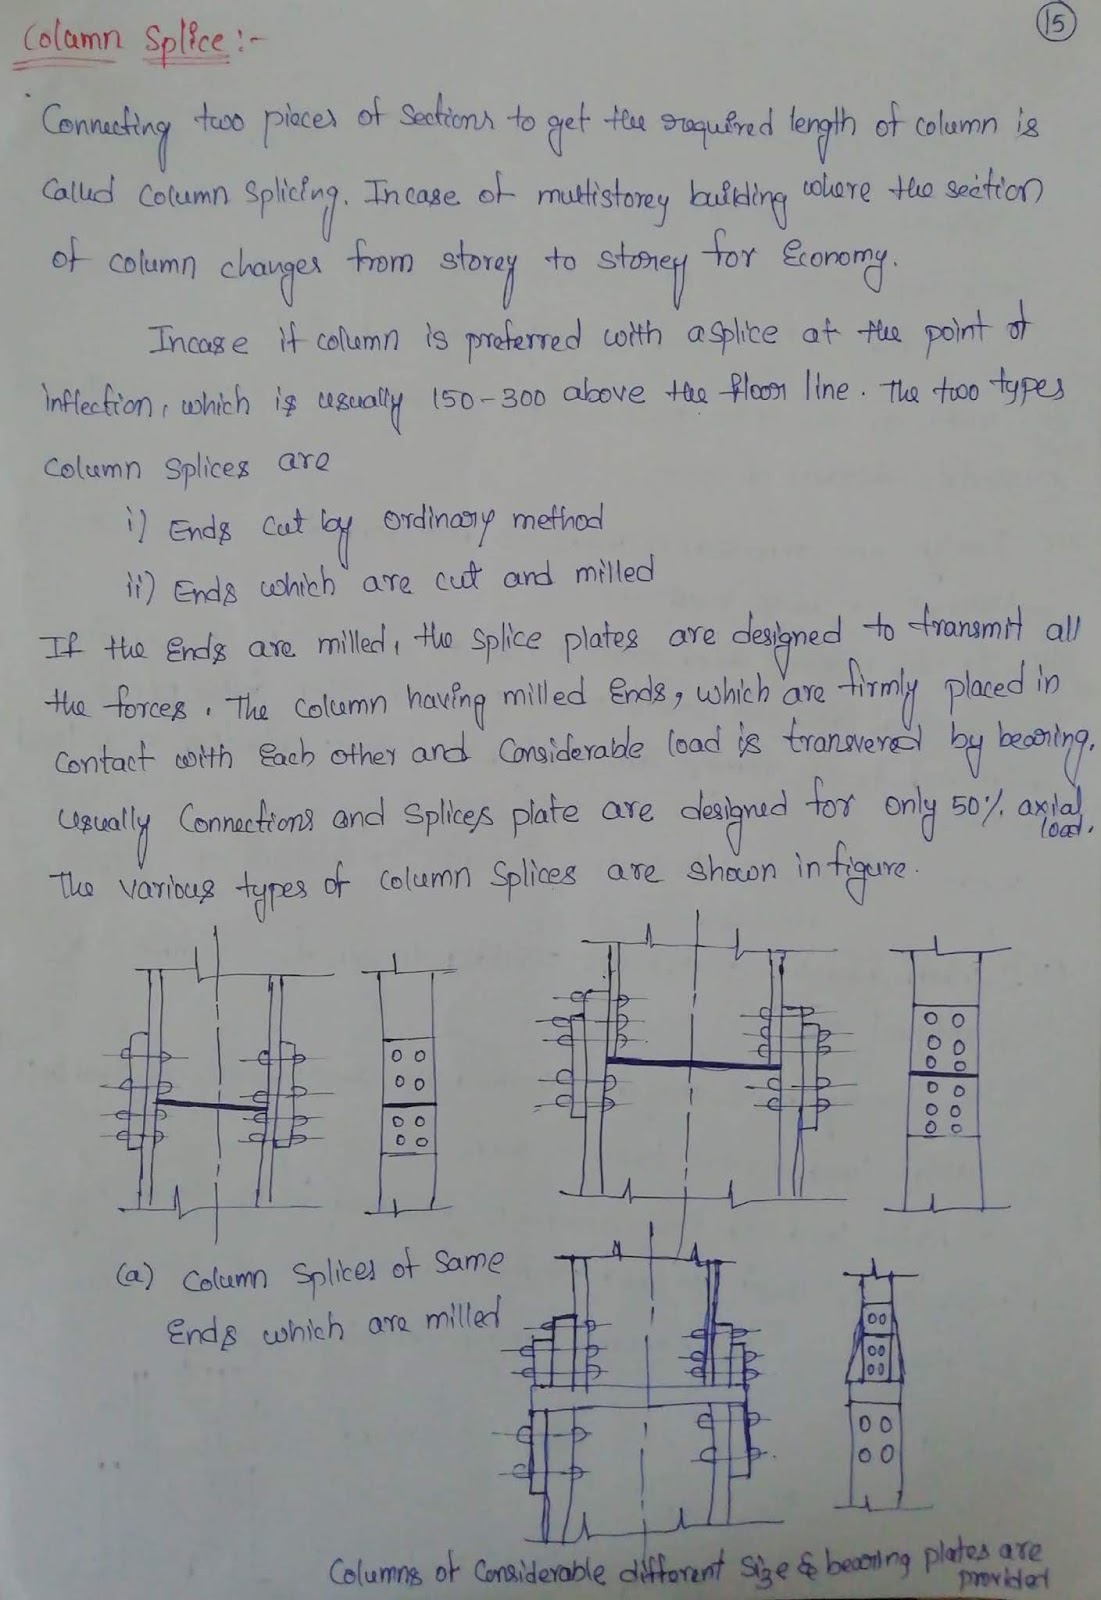 15
Column Splice :-
Connecting two pieces of Sections to get the required length of column is
Called Column Splicing. Incase of multistorey building where the section
of column changes from storey to storey for Economy.
Incase if column is preferred with a splice at the point of
inflection, which is usually 150-300 above the floor line. The two types
Column Splices are
i) Ends Cut by ordinary method
ii) Ends which are cut and milled
If the Ends are milled, the splice plates are designed to transmit all
the forces. The column having milled Ends, which are firmly placed in
Contact with Each other and Considerable load is transvered by bearing.
Usually Connections and Splices plate are designed for only 50% axial
load.
The various types of Column Splices are shown in figure.
(a) Column Splices of Same
Ends which are milled
Columns of Considerable different Size & bearing plates are
provided